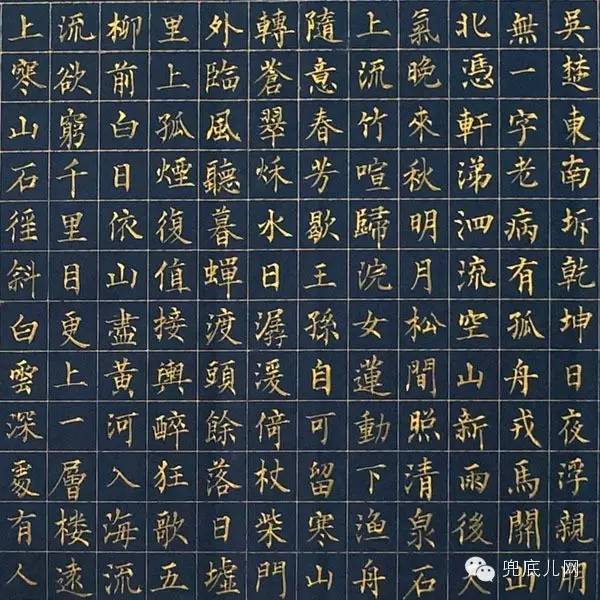 吳楚東南坼乾坤日夜浮親朋
無一字老病有孤舟戎馬關山
北憑軒涕泗流空山新雨後天
氣晚來秋明月松間照清泉石
上流竹喧歸浣女蓮動下漁舟
隨意春芳歇王孫自可留寒山
轉蒼翠秋水日潺湲倚杖柴門
外臨風聽暮蟬渡頭餘落日墟
里上孤煙復值接輿醉狂歌五
柳前白日依山盡黃河入海流
流欲窮千里目更上一層楼遠
上寒山石徑斜白雲深處有人
兜底儿网